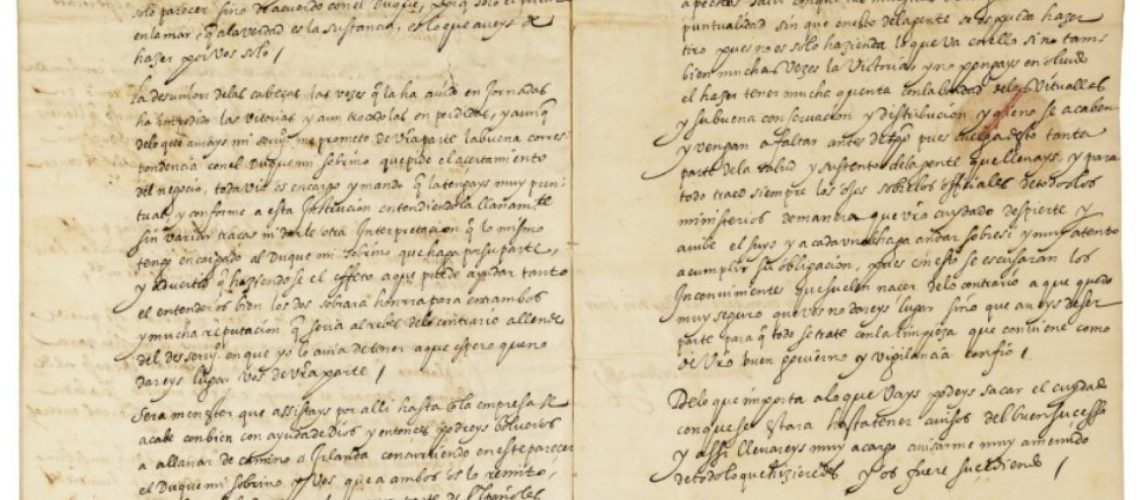 solo parecer sino de acuerdo con el Duque, pero solo el
en la mar, q a la verdad es la sustancia, es lo que aueys de
hazer por vos solo /
La desunion de las cabeças las vezes q la ha auido en Jornadas
ha impedido las vitorias y aun trocadolas en perdidas, y aunq
delo que amays mi seruy.º me prometo de vra parte la buena corres
pondencia con el Duque mi sobrino que pide el acertamiento
del negocio, toda via os encargo y mando q la tengays muy pun
tual, y conforme a esta Instrucion entendiendola llanam.te
sin variar traças ni darle otra Interpretacion q lo mismo
tengo encargado al Duque mi sobrino que haga por su parte,
y aduertid q haziendose el effeto a que puede ayudar tanto
el entenderos bien los dos sobrará honrra para entrambos
y mucha reputacion q seria al reues delo contrario allende
del desseruy.º en que yo lo auia de tener a que espero que no
dareys lugar vos de vra parte /
Sera menester que assistays por alli hasta q la empresa se
acabe con bien con ayuda de Dios y entonces podreys bolueros
a allanar de camino a Irlanda conueniendo en este parecer
el Duque mi sobrino y vos, que a ambos os lo remito,
parte de Españoles
puntualidad sin que en ello dela gente se os pueda hazer
tiro pues no es solo hazienda lo que va en ello sino tam
bien muchas vezes la Victoria, y no pongays en oluido
el hazer tener mucha quenta con la bondad delas Vituallas
y su buena conseruacion y distribucion y q no se acaben
y vengan a faltar antes de tpo pues cuelga desto tanta
parte dela salud y sustento dela gente que lleuays, y para
todo traed siempre los ojos sobre los officiales de todos los
ministerios de manera que vro cuydado despierte y
auiue el suyo y a cada vno haga andar sobre si y muy atento
a cumplir su obligacion, pues con esto se escusaran los
Inconuinientes que suelen nacer delo contrario a que quedo
muy seguro que vos no dareys lugar sino que aueys de ser
parte para q todo se trate con la limpieza que conuiene como
de vro buen gouierno y vigilancia confio /
Delo que importa a lo que vays podeys sacar el cuydado
con que se estara hasta tener auisos del buen sucesso
y assi lleuareys muy a cargo auisarme muy amenudo
de todo lo que hizieredes y os fuere sucediendo /